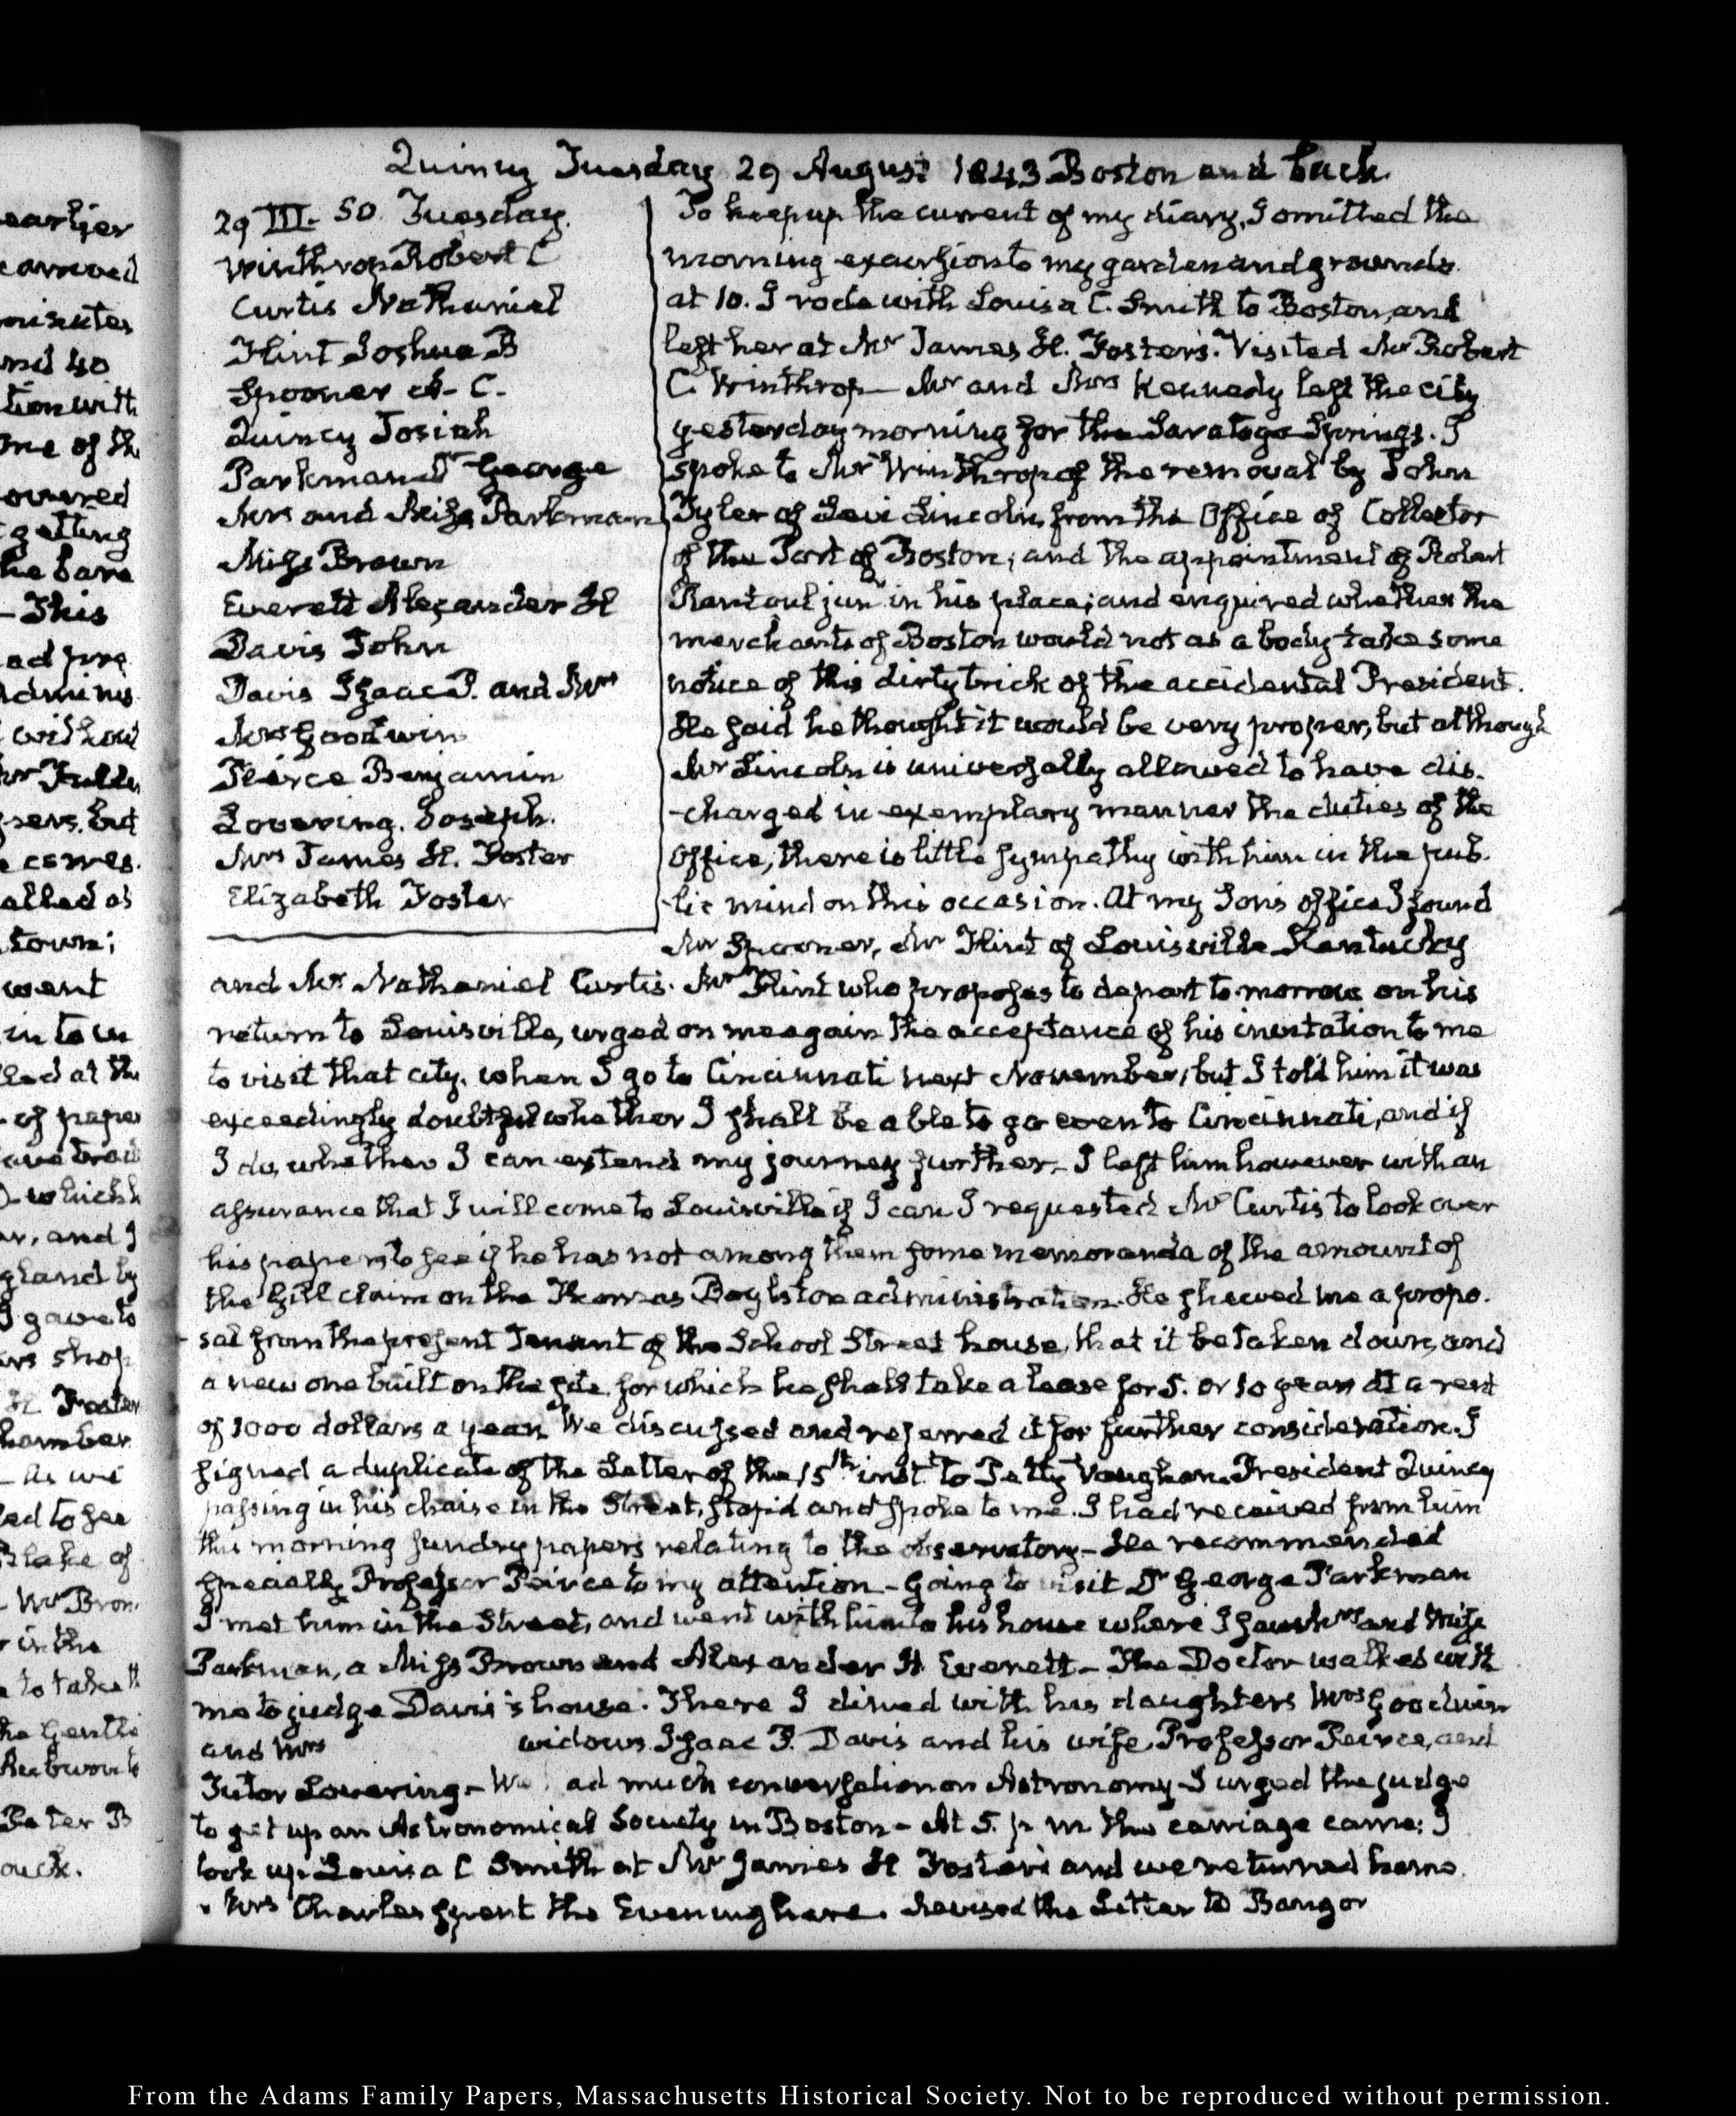 earlier
earned
minutes
nd 40
tion with
one of th
overed
getting
he bare
- This
ad pre
Adminis
without
Mr Fulle
sers, but
comes.
alled at
town;
went
in to w
led at the
of paper
ave
- which h
ar, and I
gland by
I gave to
rs shop
H. Foster
hamber
- As we
ed to see
Blake of
- Mr Brow
r in the
to take th
he Gentle
Peter B
ack.
Quincy Tuesday 29 August 1843 Boston and back.
29 III. 50. Tuesday.
Winthrop Robert C
Curtis Nathaniel
Flint Joshua B
Spooner A. C.
Quincy Josiah
Parkman Dr George
Mrs and Miss Parkman
Miss Brown
Everett Alexander H
Davis John
Davis Isaac P. and Mrs
Mrs Goodwin
Peirce Benjamin
Lovering. Joseph.
Mrs James H. Foster
Elizabeth Foster
To keep up the current of my diary, I omitted the
morning excursion to my garden and grounds.
at 10. I rode with Louisa C. Smith to Boston, and
left her at Mr James H. Foster's. Visited Mr Robert
C. Winthrop — Mr and Mrs Kennedy left the city
yesterday morning for the Saratoga Springs. I
spoke to Mr Winthrop of the removal by John
Tyler of Levi Lincoln, from the Office of Collector
of the Port of Boston; and the appointment of Robert
Rantoul junr in his place; and enquired whether the
merchants of Boston would not as a body take some
notice of this dirty trick of the accidental President.
He said he thought it would be very proper, but although
Mr Lincoln is universally allowed to have dis-
-charged in exemplary manner the duties of the
Office, there is little sympathy with him in the pub-
-lic mind on this occasion. At my Son's office I found
Mr Spooner, Mr Flint of Louisville Kentucky
and Mr Nathaniel Curtis. Mr Flint who proposes to depart to-morrow on his
return to Louisville, urged on me again the acceptance of his invitation to me
to visit that city, when I go to Cincinnati next November, but I told him it was
exceedingly doubtful whether I shall be able to go even to Cincinnati, and if
I do, whether I can extend my journey further - I left him however with an
assurance that I will come to Louisville if I can. I requested Mr Curtis to look over
his papers to see if he has not among them some memoranda of the amount of
the Gill claim on the Thomas Boylston administration. He shewed me a propo-
-sal from the present Tenant of the School Street house, that it be taken down, and
a new one built on the site, for which he shall take a lease for 5. or 10 years at a rent
of 1000 dollars a year. We discussed and referred it for further consideration. I
signed a duplicate of the Letter of the 15th inst. to Petty Vaughan. President Quincy
passing in his chaise in the Street, stop'd and spoke to me. I had received from him
this morning sundry papers relating to the observatory - He recommended
specially Professor Peirce to my attention - Going to visit Dr George Parkman
I met him in the Street, and went with him to his house where I saw Mrs and Miss
Parkman, a Miss Brown and Alexander H. Everett - The Doctor walked with
me to judge Davis's house. There I dined with his daughters Mrs Goodwin
and Mrs widows. Isaac P. Davis and his wife, Professor Peirce, and
Tutor Lovering - We had much conversation on Astronomy - I urged the judge
to get up an Astronomical Society in Boston - At 5. p m the carriage came: I
took up Louisa C Smith at Mr James H Foster's and we returned home.
Mrs Charles spent the Evening here. Revised the Letter to Bangor
From the Adams Family Papers, Massachusetts Historical Society. Not to be reproduced without permission.